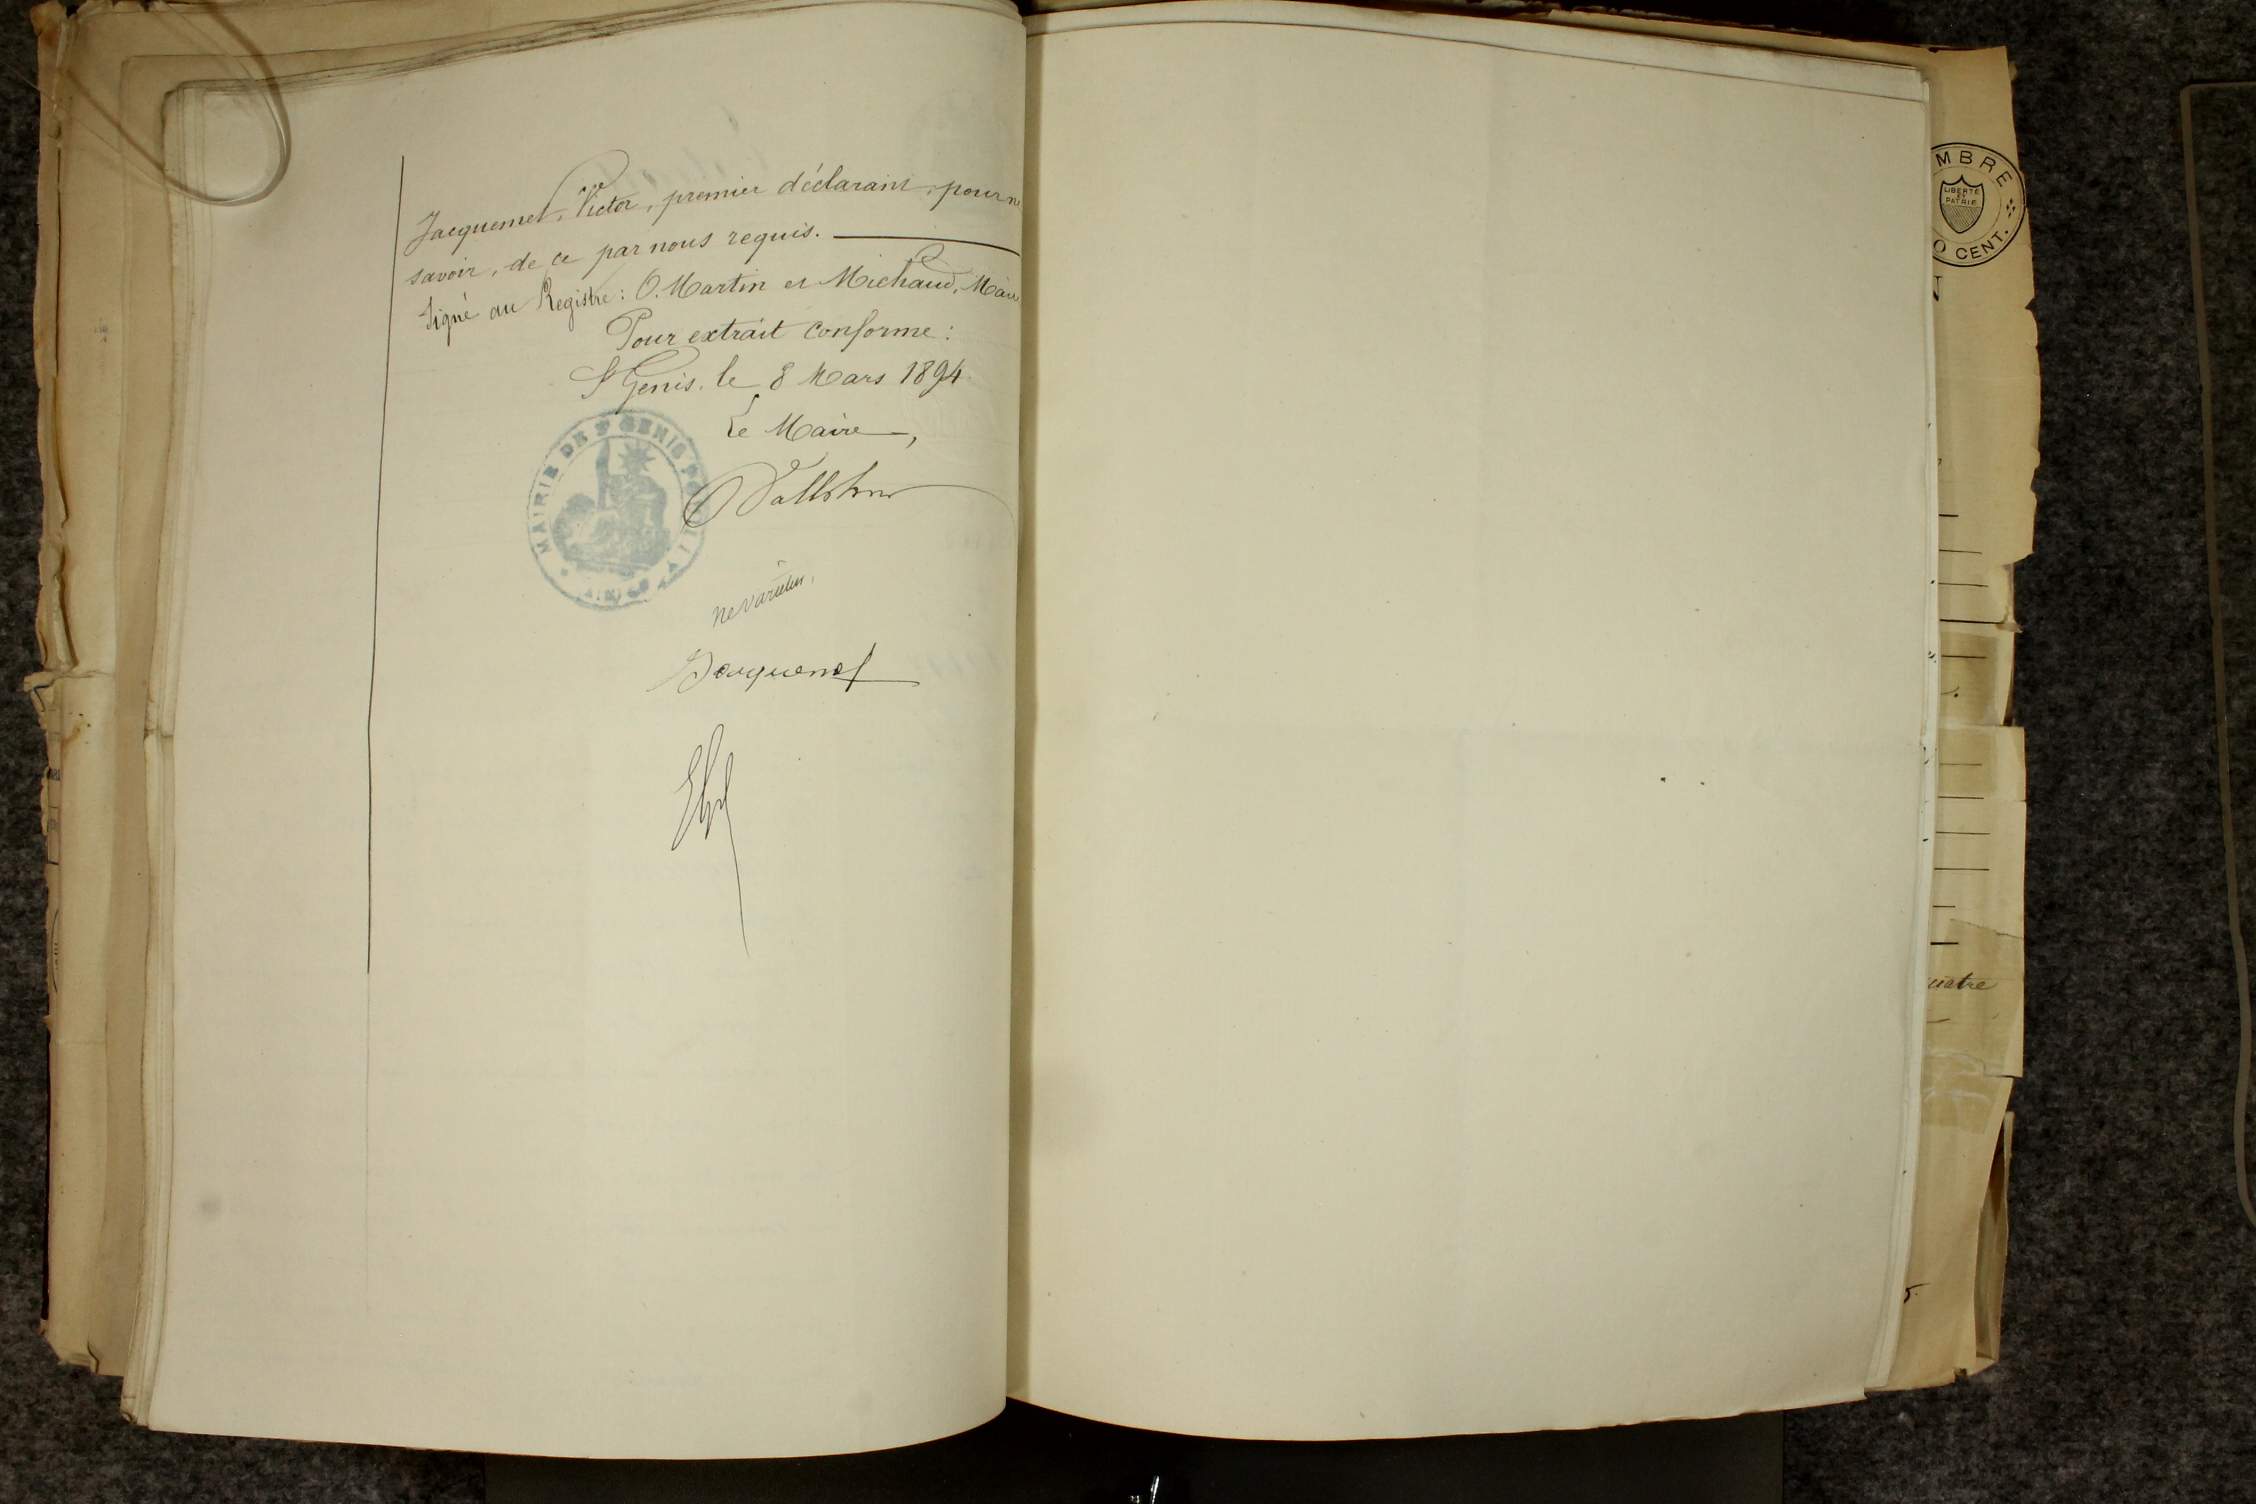 Jacquemet, Victor, premier déclarant, pour ne
savoir, de ce par nous requis.
Signé au Registre: O. Martin et Michaud, Maire
Pour extrait conforme:
St Genis. le 8 Mars 1894
Le Maire,
MAIRIE DE St GENIS
ne varietur.
Jacquemet
MBRE
LIBERTÉ
ET
PATRIE
0 CENT.
uatre